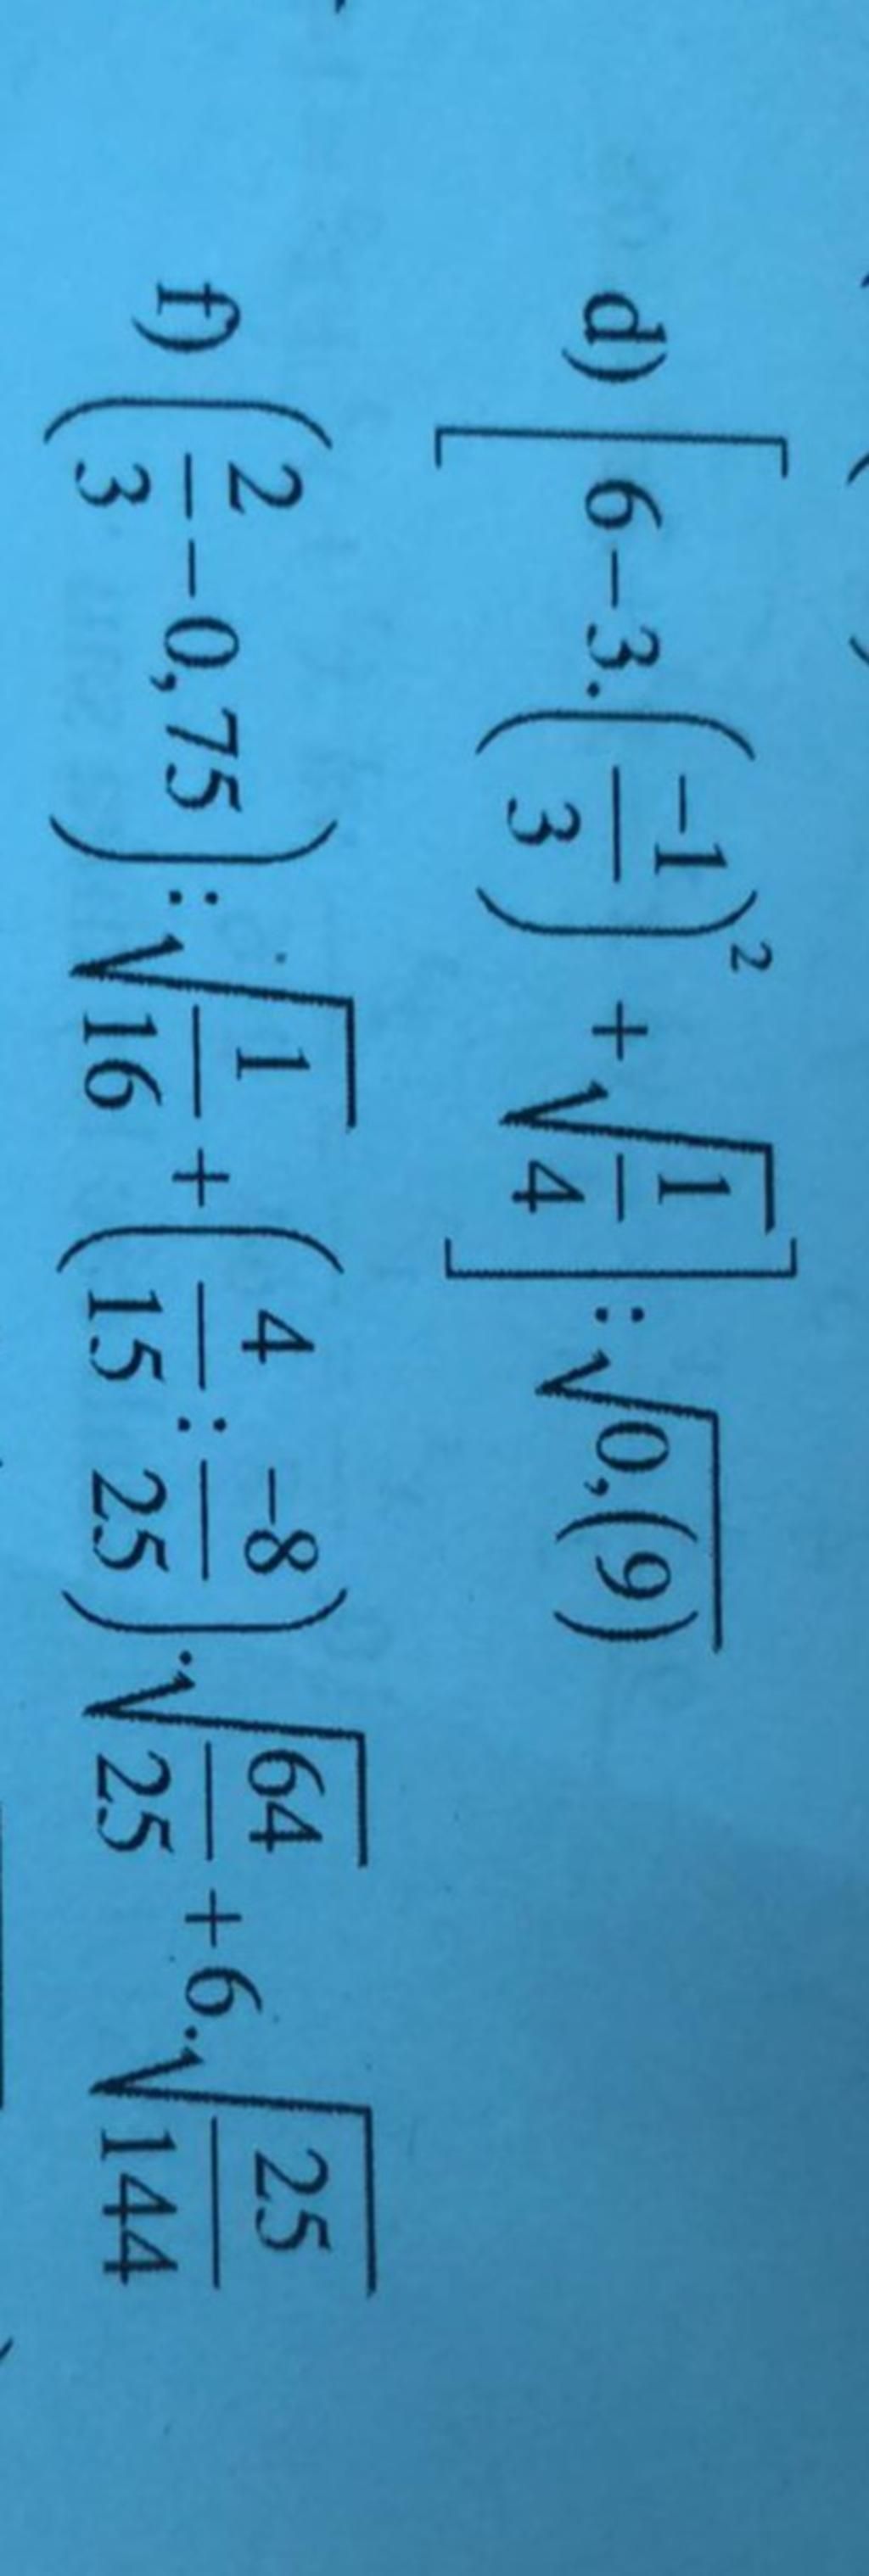 d) [6 − 3.(−1/3)² + √(1/4)] : √0,(9)
f) (2/3 − 0,75) : √(1/16) + (4/15 : −8/25).√(64/25) + 6.√(25/144)